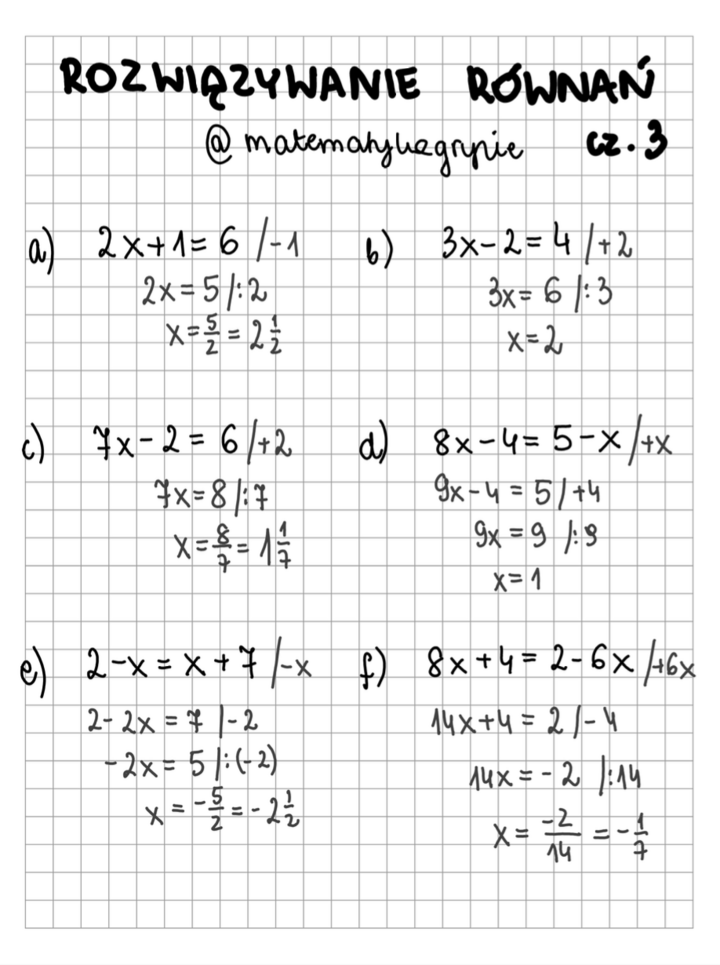 ROZWIĄZYWANIE RÓWNAŃ
@matematykagrypie cz. 3
a) 2x+1=6 /-1
2x=5 /:2
x=5/2=2 1/2
b) 3x-2=4 /+2
3x=6 /:3
x=2
c) 7x-2=6 /+2
7x=8 /:7
x=8/7=1 1/7
d) 8x-4=5-x /+x
9x-4=5 /+4
9x=9 /:9
x=1
e) 2-x=x+7 /-x
2-2x=7 /-2
-2x=5 /:(-2)
x=-5/2=-2 1/2
f) 8x+4=2-6x /+6x
14x+4=2 /-4
14x=-2 /:14
x=-2/14=-1/7